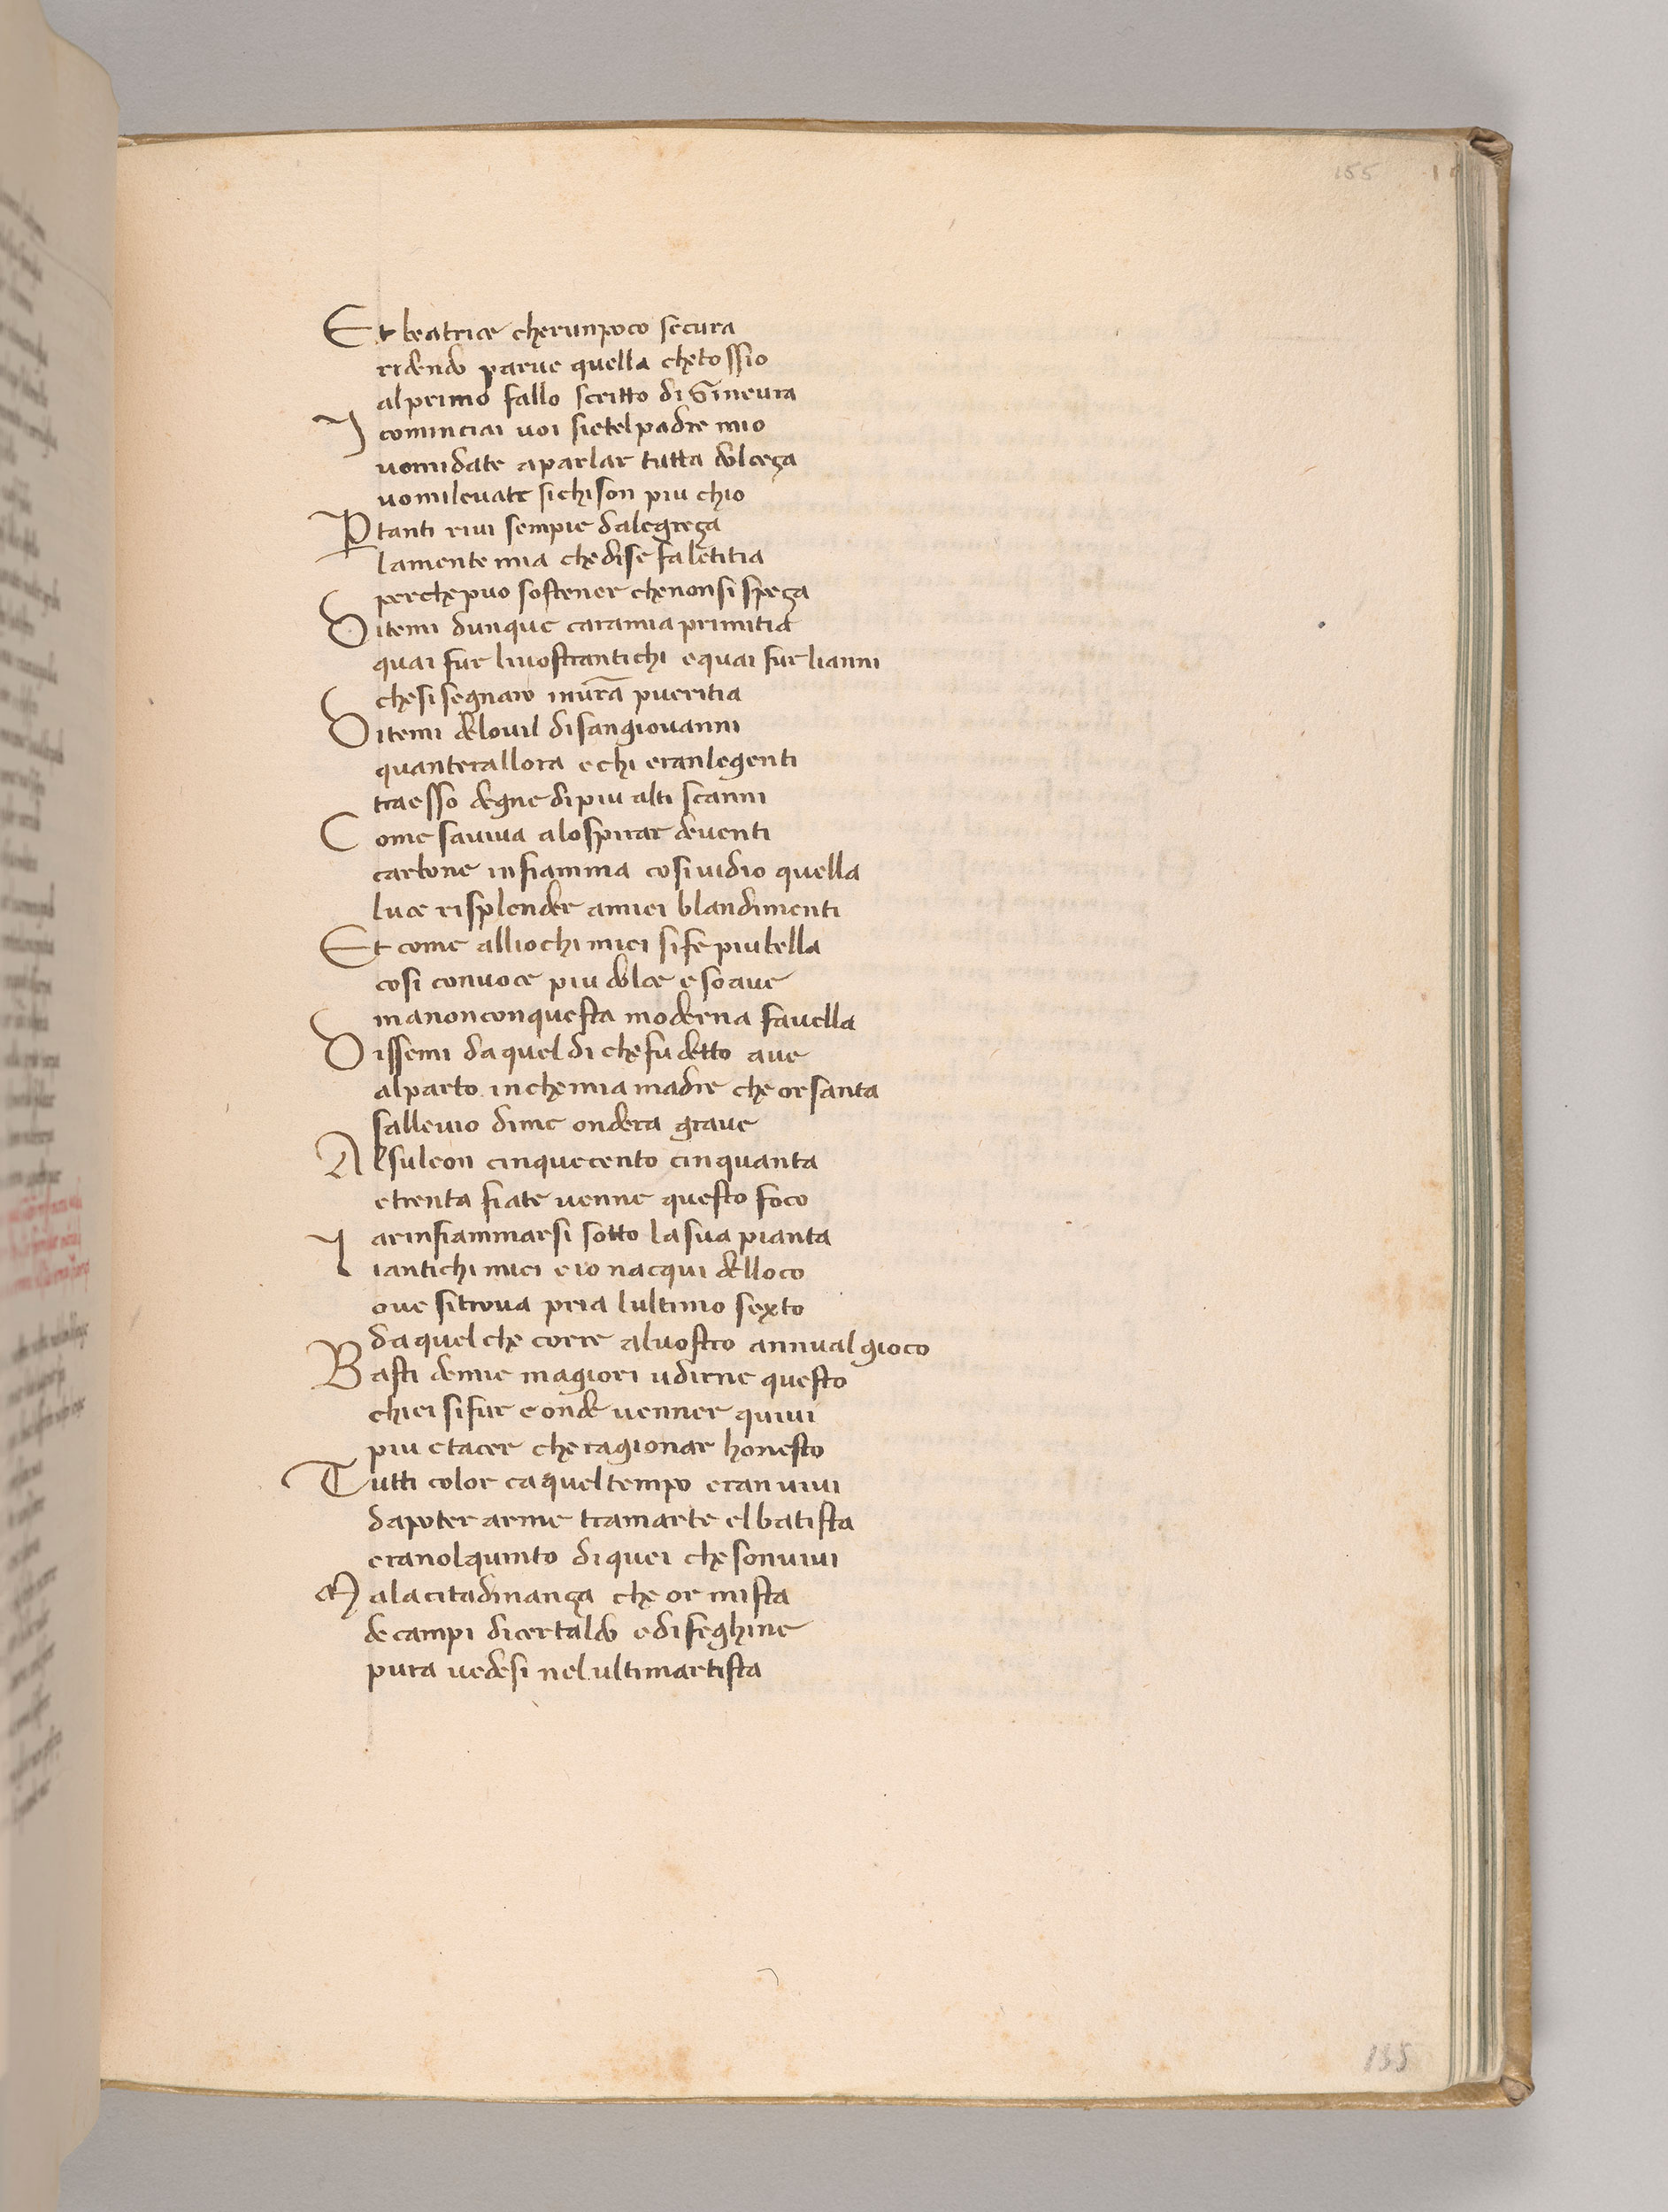 155
Et beatrice cherunpoco secura
ridendo parve quella chetossio
alprimo fallo scritto di Gineura
I cominciai voi sietelpadre mio
vomidate aparlar tutta dolceça
vomilevate sichison piu chio
Ptanti rivi sempie dalegreça
lamente mia chedise faletitia
perchepuo sostener chenonsi speça
Ditemi dunque caramia primitia
quai fur livostrantichi equai furlianni
chesi segnaro invr̃a pueritia
Ditemi delovil disangiovanni
quanterallora echi eranlegenti
traesso degne dipiu alti scanni
Come saviva alospirar deventi
carbone infiamma cosividio quella
luce risplender amiei blandimenti
Et come alliochi miei sife piubella
cosi convoce piu dolce esoave
manonconquesta moderna favella
Dissemi daquel di chefu detto ave
alparto inchemia madre che orsanta
sallevio dime ondera grave
Alsuleon cinquecento cinquanta
etrenta fiate venne questo foco
arinfiammarsi sotto lasua pianta
I iantichi miei eio nacqui delloco
ove sitrova pria lultimo sexto
daquelche corre alvostro annual gioco
Basti demie magiori udirne questo
chiei sifur eonde venner quivi
piu etacer che ragionar honesto
Tutti color caqueltempo eran vivi
dapoter arme tramarte elbatista
eranolquinto diquei che sonvivi
Malacitadinança che or mista
decampi dicertaldo edifeghine
pura vedesi nel ultimartista
155